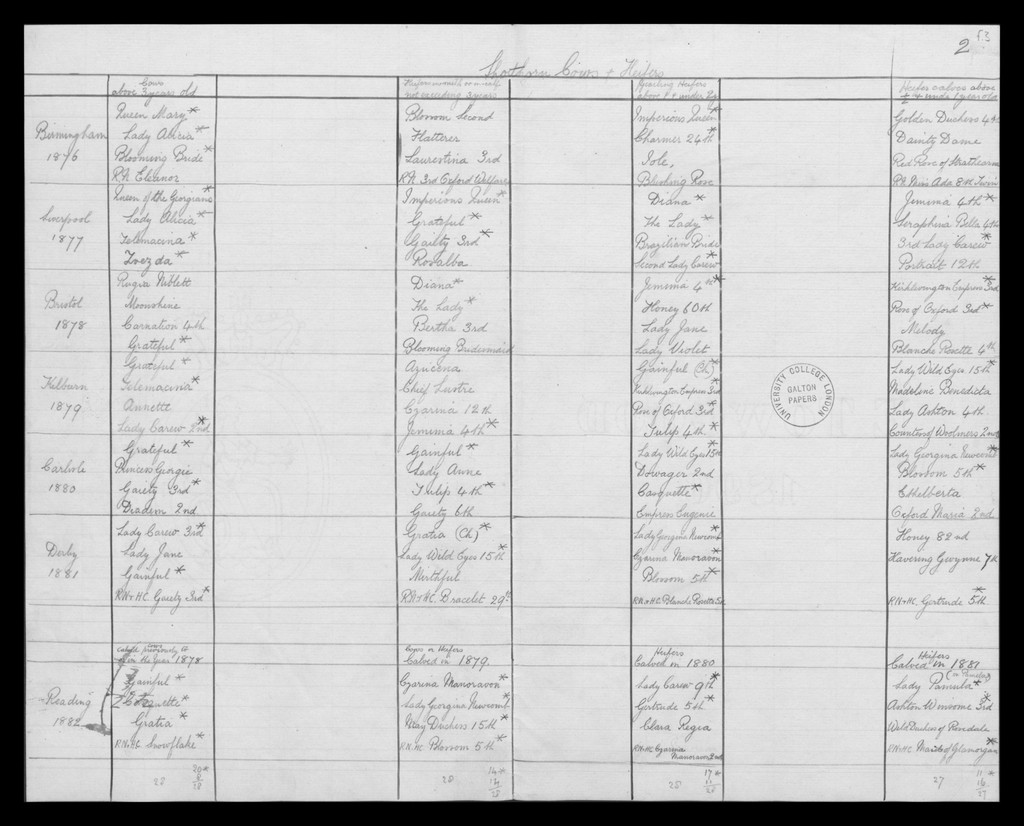 2 53
Shorthorn Cows + Heifers
Cows
above 3 years old
not exceeding 3 years
Yearling Heifers
above 1 + under 2
Heifer calves above
+ under 1 year old
Birmingham
1876
Queen Mary *
Lady Alicia *
Blooming Bride *
R.N. Eleanor
Blossom Second
Flatterer
Laurestina 3rd
R.N. 3rd Oxford Welfare
Imperious Queen *
Charmer 24th *
Iole,
Blushing Rose
Golden Duchess 4th
Dainty Dame
Red Rose of Strathearn
R.N. Miss Ada 8th Twin
Liverpool
1877
Queen of the Georgians *
Lady Alicia *
Telemacina *
Zvezda *
Imperious Queen *
Grateful *
Gaiety 3rd *
Rosalba
Diana *
The Lady *
Brazilian Bride
Second Lady Carew *
Jemima 4th *
Seraphina Bella 4th
3rd Lady Carew *
Portrait 12th
Bristol
1878
Rugia Niblett
Moonshine
Carnation 4th
Grateful *
Diana *
The Lady *
Bertha 3rd
Blooming Bridesmaid
Jemima 4th *
Honey 60th
Lady Jane
Lady Violet
Kirklevington Empress 3rd *
Rose of Oxford 3rd *
Melody
Blanche Rosette 4th
Kilburn
1879
Grateful *
Telemacina *
Annette
Lady Carew 2nd *
Azucena
Chief Lustre
Czarina 12th
Jemima 4th *
Gainful (Ch) *
Kirklevington Empress 3rd *
Rose of Oxford 3rd *
Tulip 4th *
Lady Wild Eyes 15th *
Madeline Benedicta
Lady Ashton 4th.
Countess of Woolmers 2nd
Carlisle
1880
Grateful *
Princess Georgie
Gaiety 3rd *
Diadem 2nd
Gainful *
Lady Anne
Tulip 4th *
Gaiety 6th
Lady Wild Eyes 15th *
Dowager 2nd
Casquette *
Empress Eugenie
Lady Georgina Newcomb *
Blossom 5th *
Ethelberta
Oxford Maria 2nd
Derby
1881
Lady Carew 3rd *
Lady Jane
Gainful *
R.N + HC Gaiety 3rd *
Gratia (Ch) *
Lady Wild Eyes 15th *
Mirthful
R.N + HC. Bracelet 29th
Lady Georgina Newcomb *
Czarina Manoravon *
Blossom 5th *
R.N + HC Blanche Rosette 5th
Honey 82nd
Havering Gwynne 7th
R.N + HC. Gertrude 5th *
Cows
Calved previously to
or in the Year 1878
Cows or Heifers
Calved in 1879.
Heifers
Calved in 1880
Heifers
Calved in 1881
Reading
1882
Gainful *
Coquette *
Gratia *
R.N + HC Snowflake *
Czarina Manoravon *
Lady Georgina Newcomb *
May Duchess 15th *
R.N. HC Blossom 5th *
Lady Carew 9th *
Gertrude 5th *
Clara Regia
R.N + HC Czarina
Manoravon 2nd
Lady Pamela *
Ashton Winsome 3rd *
Wild Duchess of Rosedale
R.N + HC Maid of Glamorgan *
28
20 *
8
28
28
14 *
14
28
28
17 *
11
28
27
11 *
16
27
UNIVERSITY COLLEGE LONDON
GALTON
PAPERS